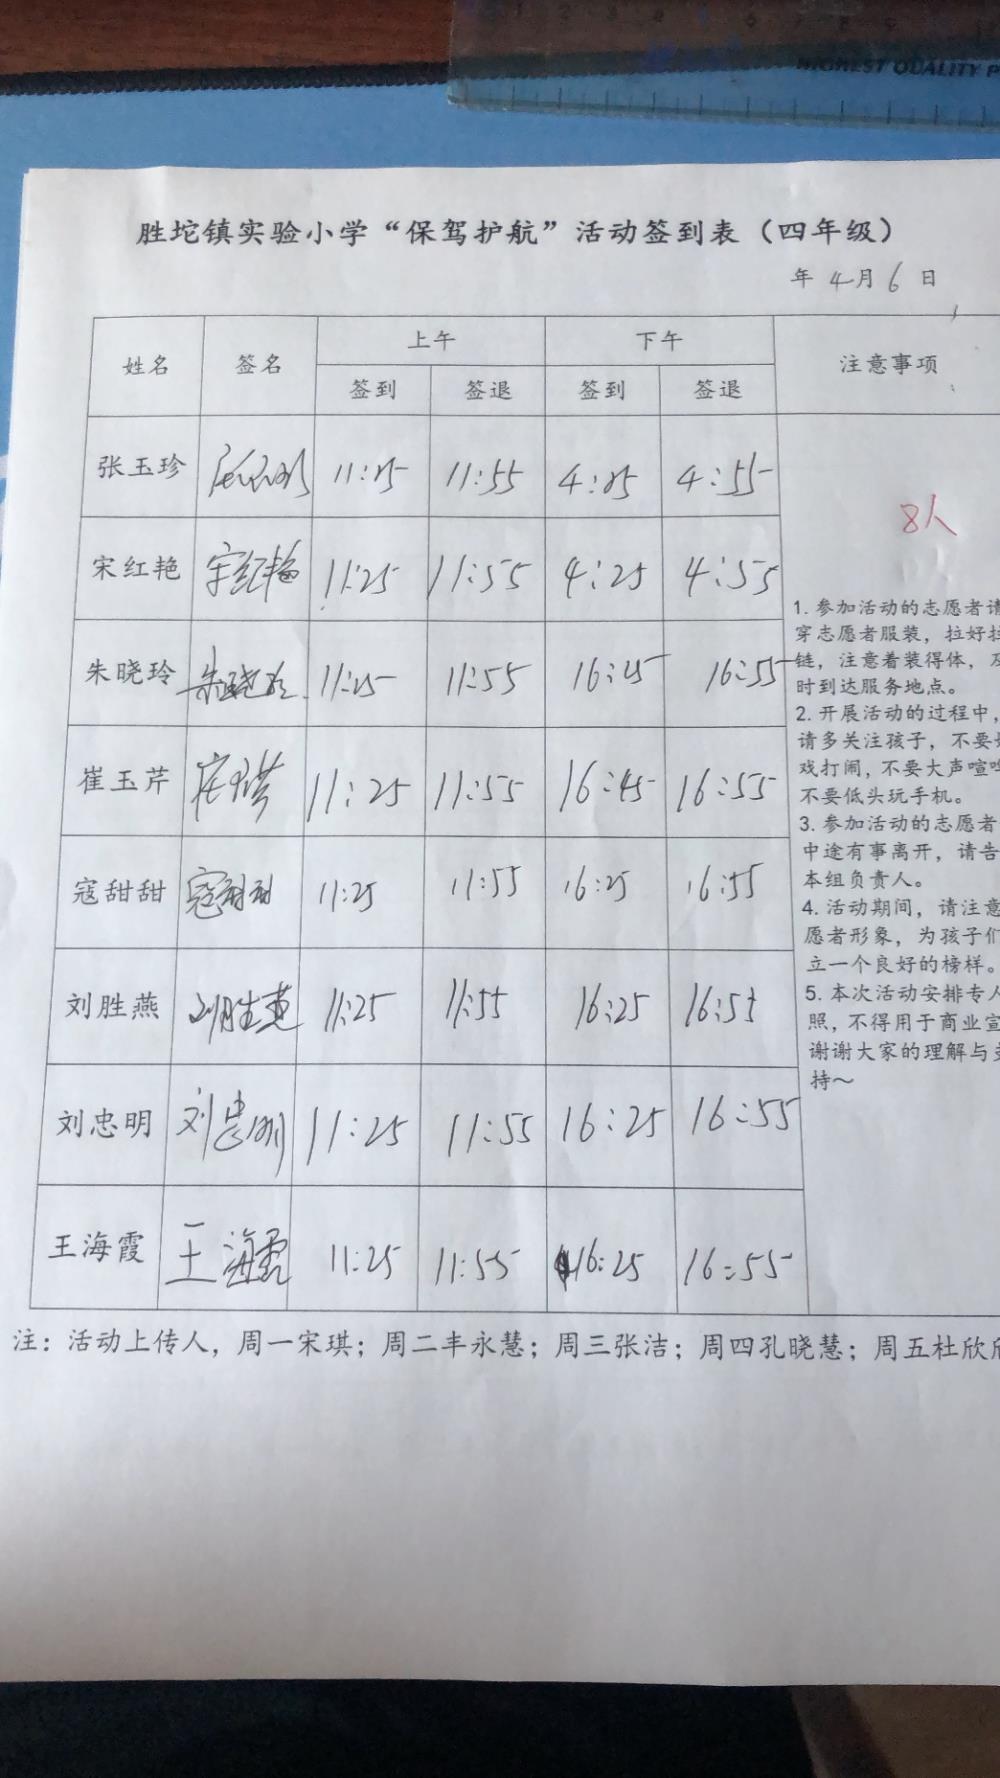 HIGHEST QUALITY P
胜坨镇实验小学“保驾护航”活动签到表（四年级）
年 4月 6 日
姓名 签名 上午 下午 注意事项
签到 签退 签到 签退
张玉珍 11:25 11:55 4:25 4:55
8人
宋红艳 宋红艳 11:25 11:55 4:25 4:55
朱晓玲 朱晓玲 11:25 11:55 16:25 16:55
崔玉芹 11:25 11:55 16:45 16:55
寇甜甜 寇甜甜 11:25 11:55 16:25 16:55
刘胜燕 刘胜燕 11:25 11:55 16:25 16:55
刘忠明 刘忠明 11:25 11:55 16:25 16:55
王海霞 王海霞 11:25 11:55 16:25 16:55
1. 参加活动的志愿者请
穿志愿者服装，拉好拉
链，注意着装得体，及
时到达服务地点。
2. 开展活动的过程中，
请多关注孩子，不要
戏打闹，不要大声喧哗
不要低头玩手机。
3. 参加活动的志愿者
中途有事离开，请告
本组负责人。
4. 活动期间，请注意
愿者形象，为孩子们
立一个良好的榜样。
5. 本次活动安排专人
照，不得用于商业宣
谢谢大家的理解与支
持～
注：活动上传人，周一宋琪；周二丰永慧；周三张洁；周四孔晓慧；周五杜欣欣